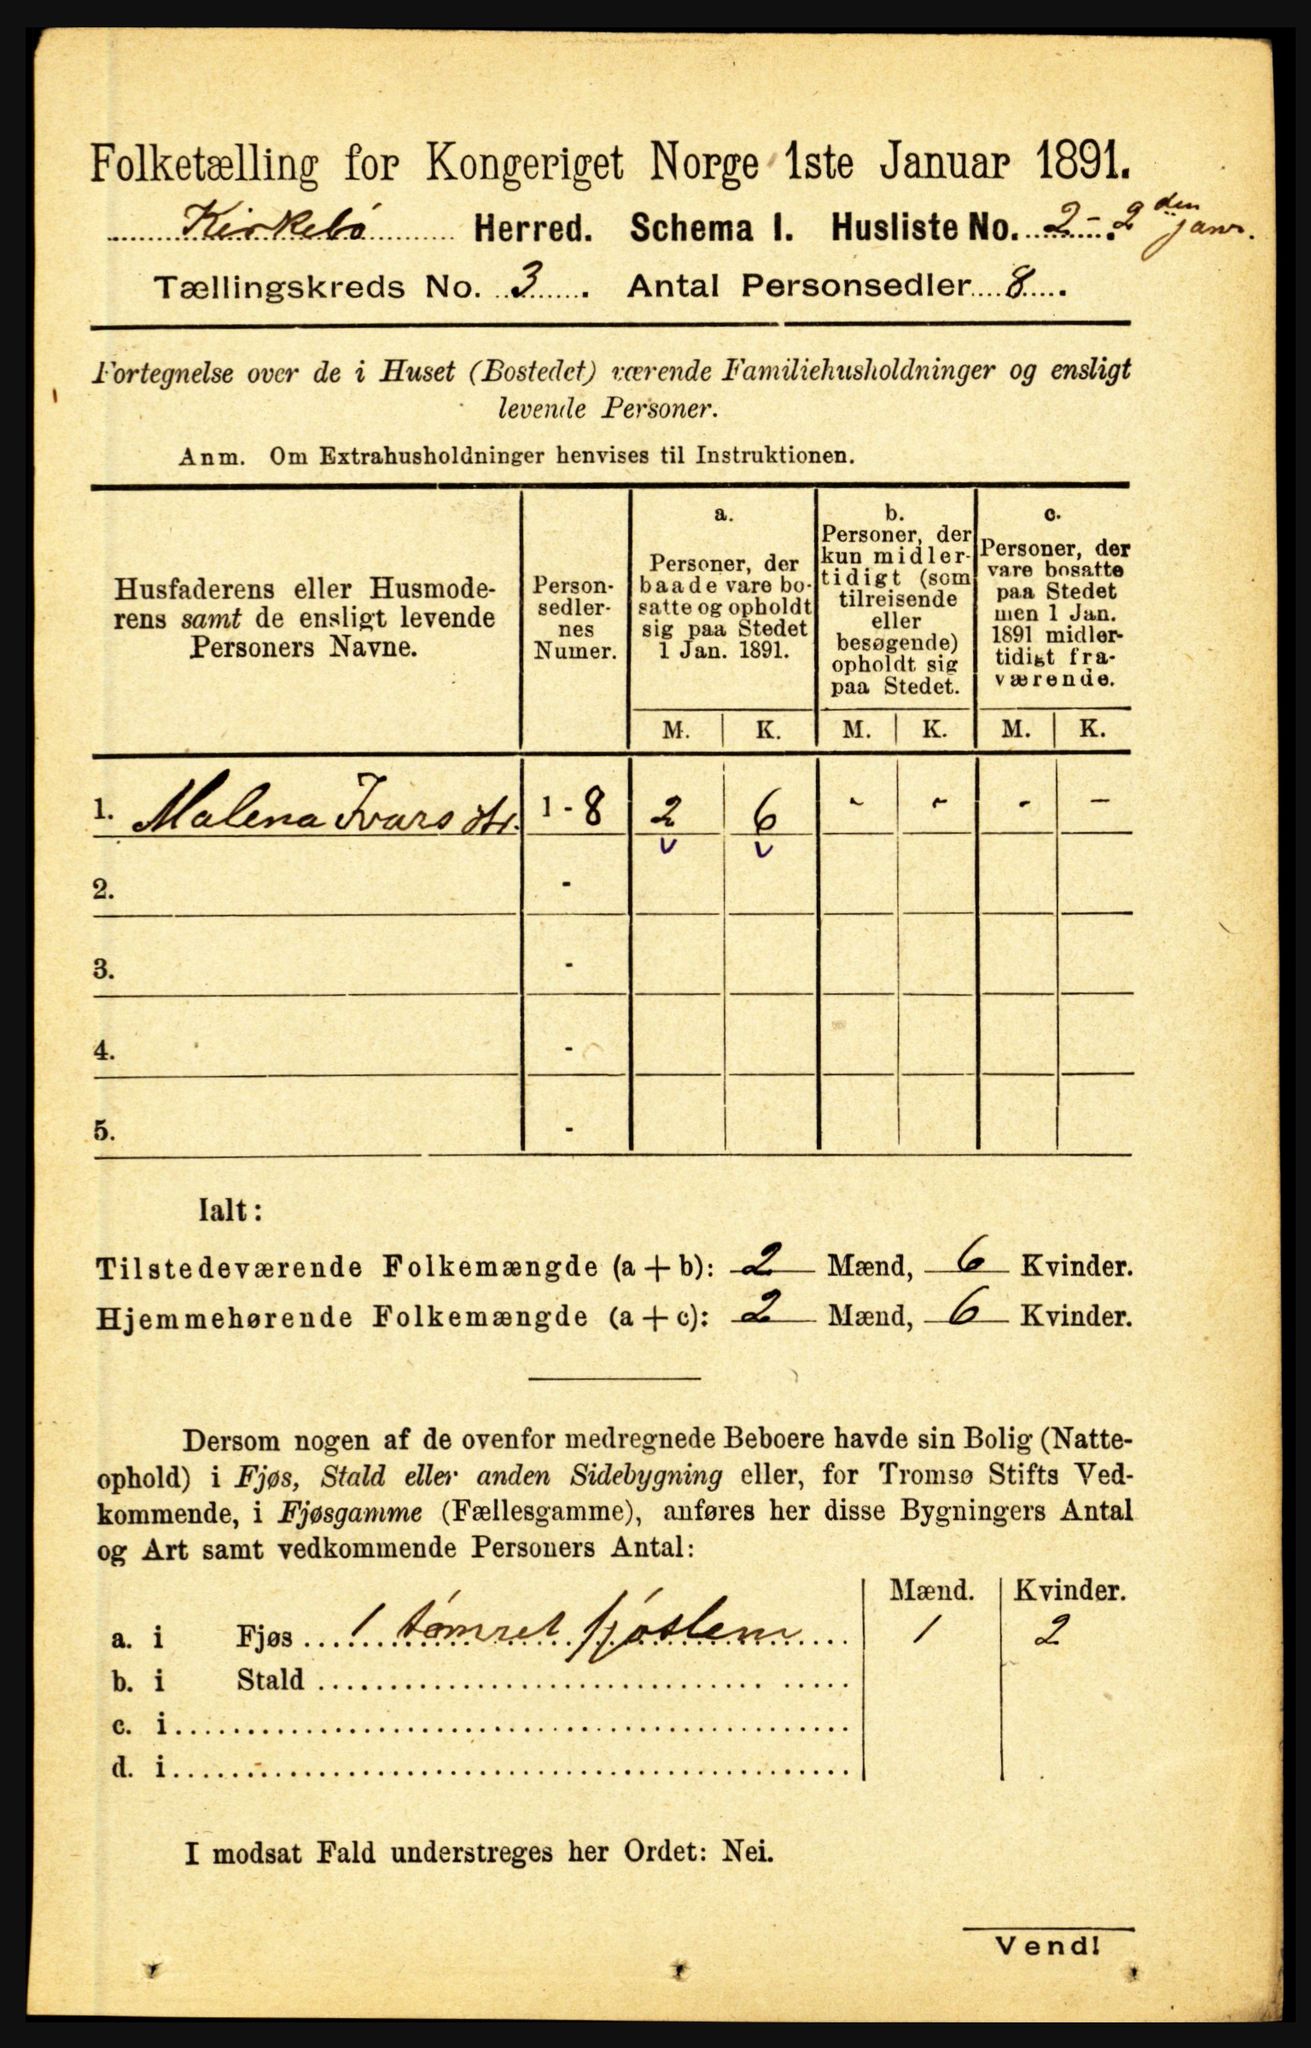 Folketælling for Kongeriget Norge 1ste Januar 1891.
Kirkebø Herred. Schema I. Husliste No. 2 - 2den janr.
Tællingskreds No. 3. Antal Personsedler 8.
Fortegnelse over de i Huset (Bostedet) værende Familiehusholdninger og ensligt
levende Personer.
Anm. Om Extrahusholdninger henvises til Instruktionen.
Husfaderens eller Husmode-
rens samt de ensligt levende
Personers Navne.
Person-
sedler-
nes
Numer.
a.
Personer, der
baade vare bo-
satte og opholdt
sig paa Stedet
1 Jan. 1891.
b.
Personer, der
kun midler-
tidigt (som
tilreisende
eller
besøgende)
opholdt sig
paa Stedet.
c.
Personer, der
vare bosatte
paa Stedet
men 1 Jan.
1891 midler-
tidigt fra-
værende.
M. K. M. K. M. K.
1. Malena Ivarsdtr. 1 - 8 2 6 - - - -
2. -
3. -
4. -
5. -
Ialt:
Tilstedeværende Folkemængde (a + b): 2 Mænd, 6 Kvinder.
Hjemmehørende Folkemængde (a + c): 2 Mænd, 6 Kvinder.
Dersom nogen af de ovenfor medregnede Beboere havde sin Bolig (Natte-
ophold) i Fjøs, Stald eller anden Sidebygning eller, for Tromsø Stifts Ved-
kommende, i Fjøsgamme (Fællesgamme), anføres her disse Bygningers Antal
og Art samt vedkommende Personers Antal:
Mænd. Kvinder.
a. i Fjøs 1 tømret fjøslem 1 2
b. i Stald
c. i
d. i
I modsat Fald understreges her Ordet: Nei.
Vend!